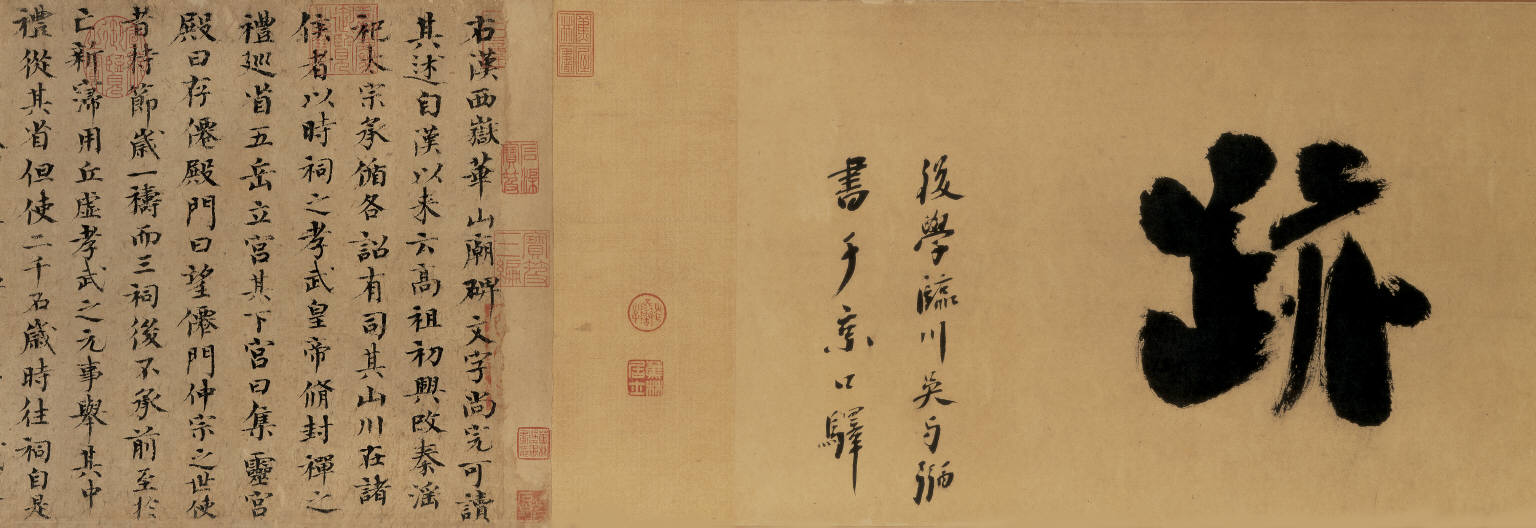 跡
後學臨川吳与弼
書于京口驛
右漢西嶽華山廟碑文字尚完可讀
其述自漢以来云高祖初興改秦滛
祀太宗承循各詔有司其山川在諸
侯者以時祠之孝武皇帝脩封禪之
禮巡省五岳立宮其下宮曰集靈宮
殿曰存僊殿門曰望僊門仲宗之世使
者持節歲一禱而三祠後不承前至於
亡新寖用丘虛孝武之元事舉其中
禮從其省但使二千石歲時往祠自是